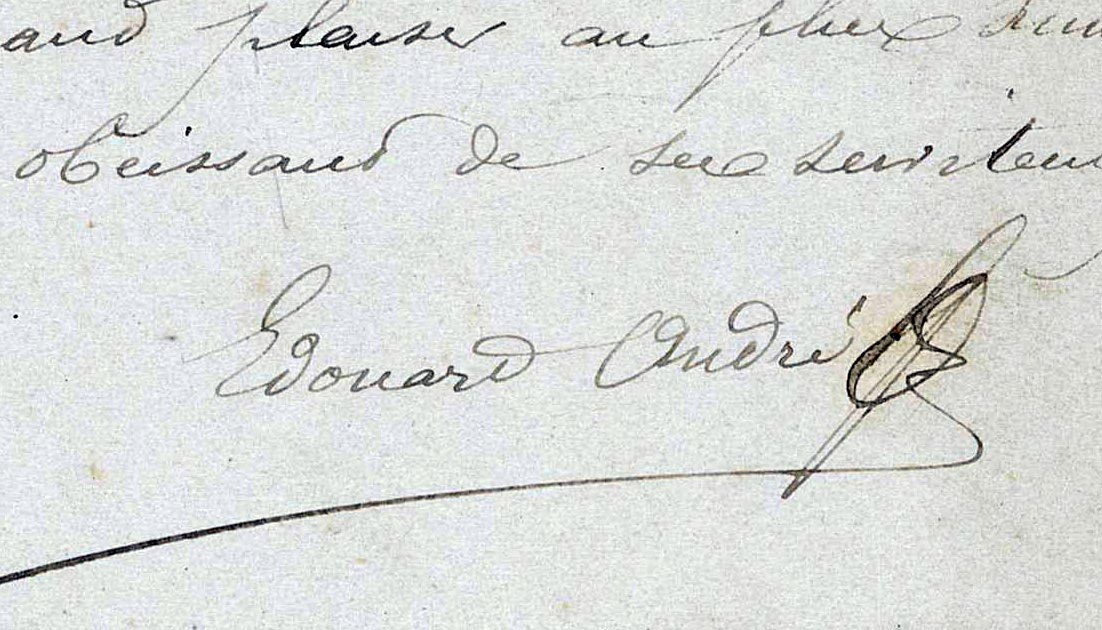 and plaisir au plus
obeissant de ses serviteur
Edouard André